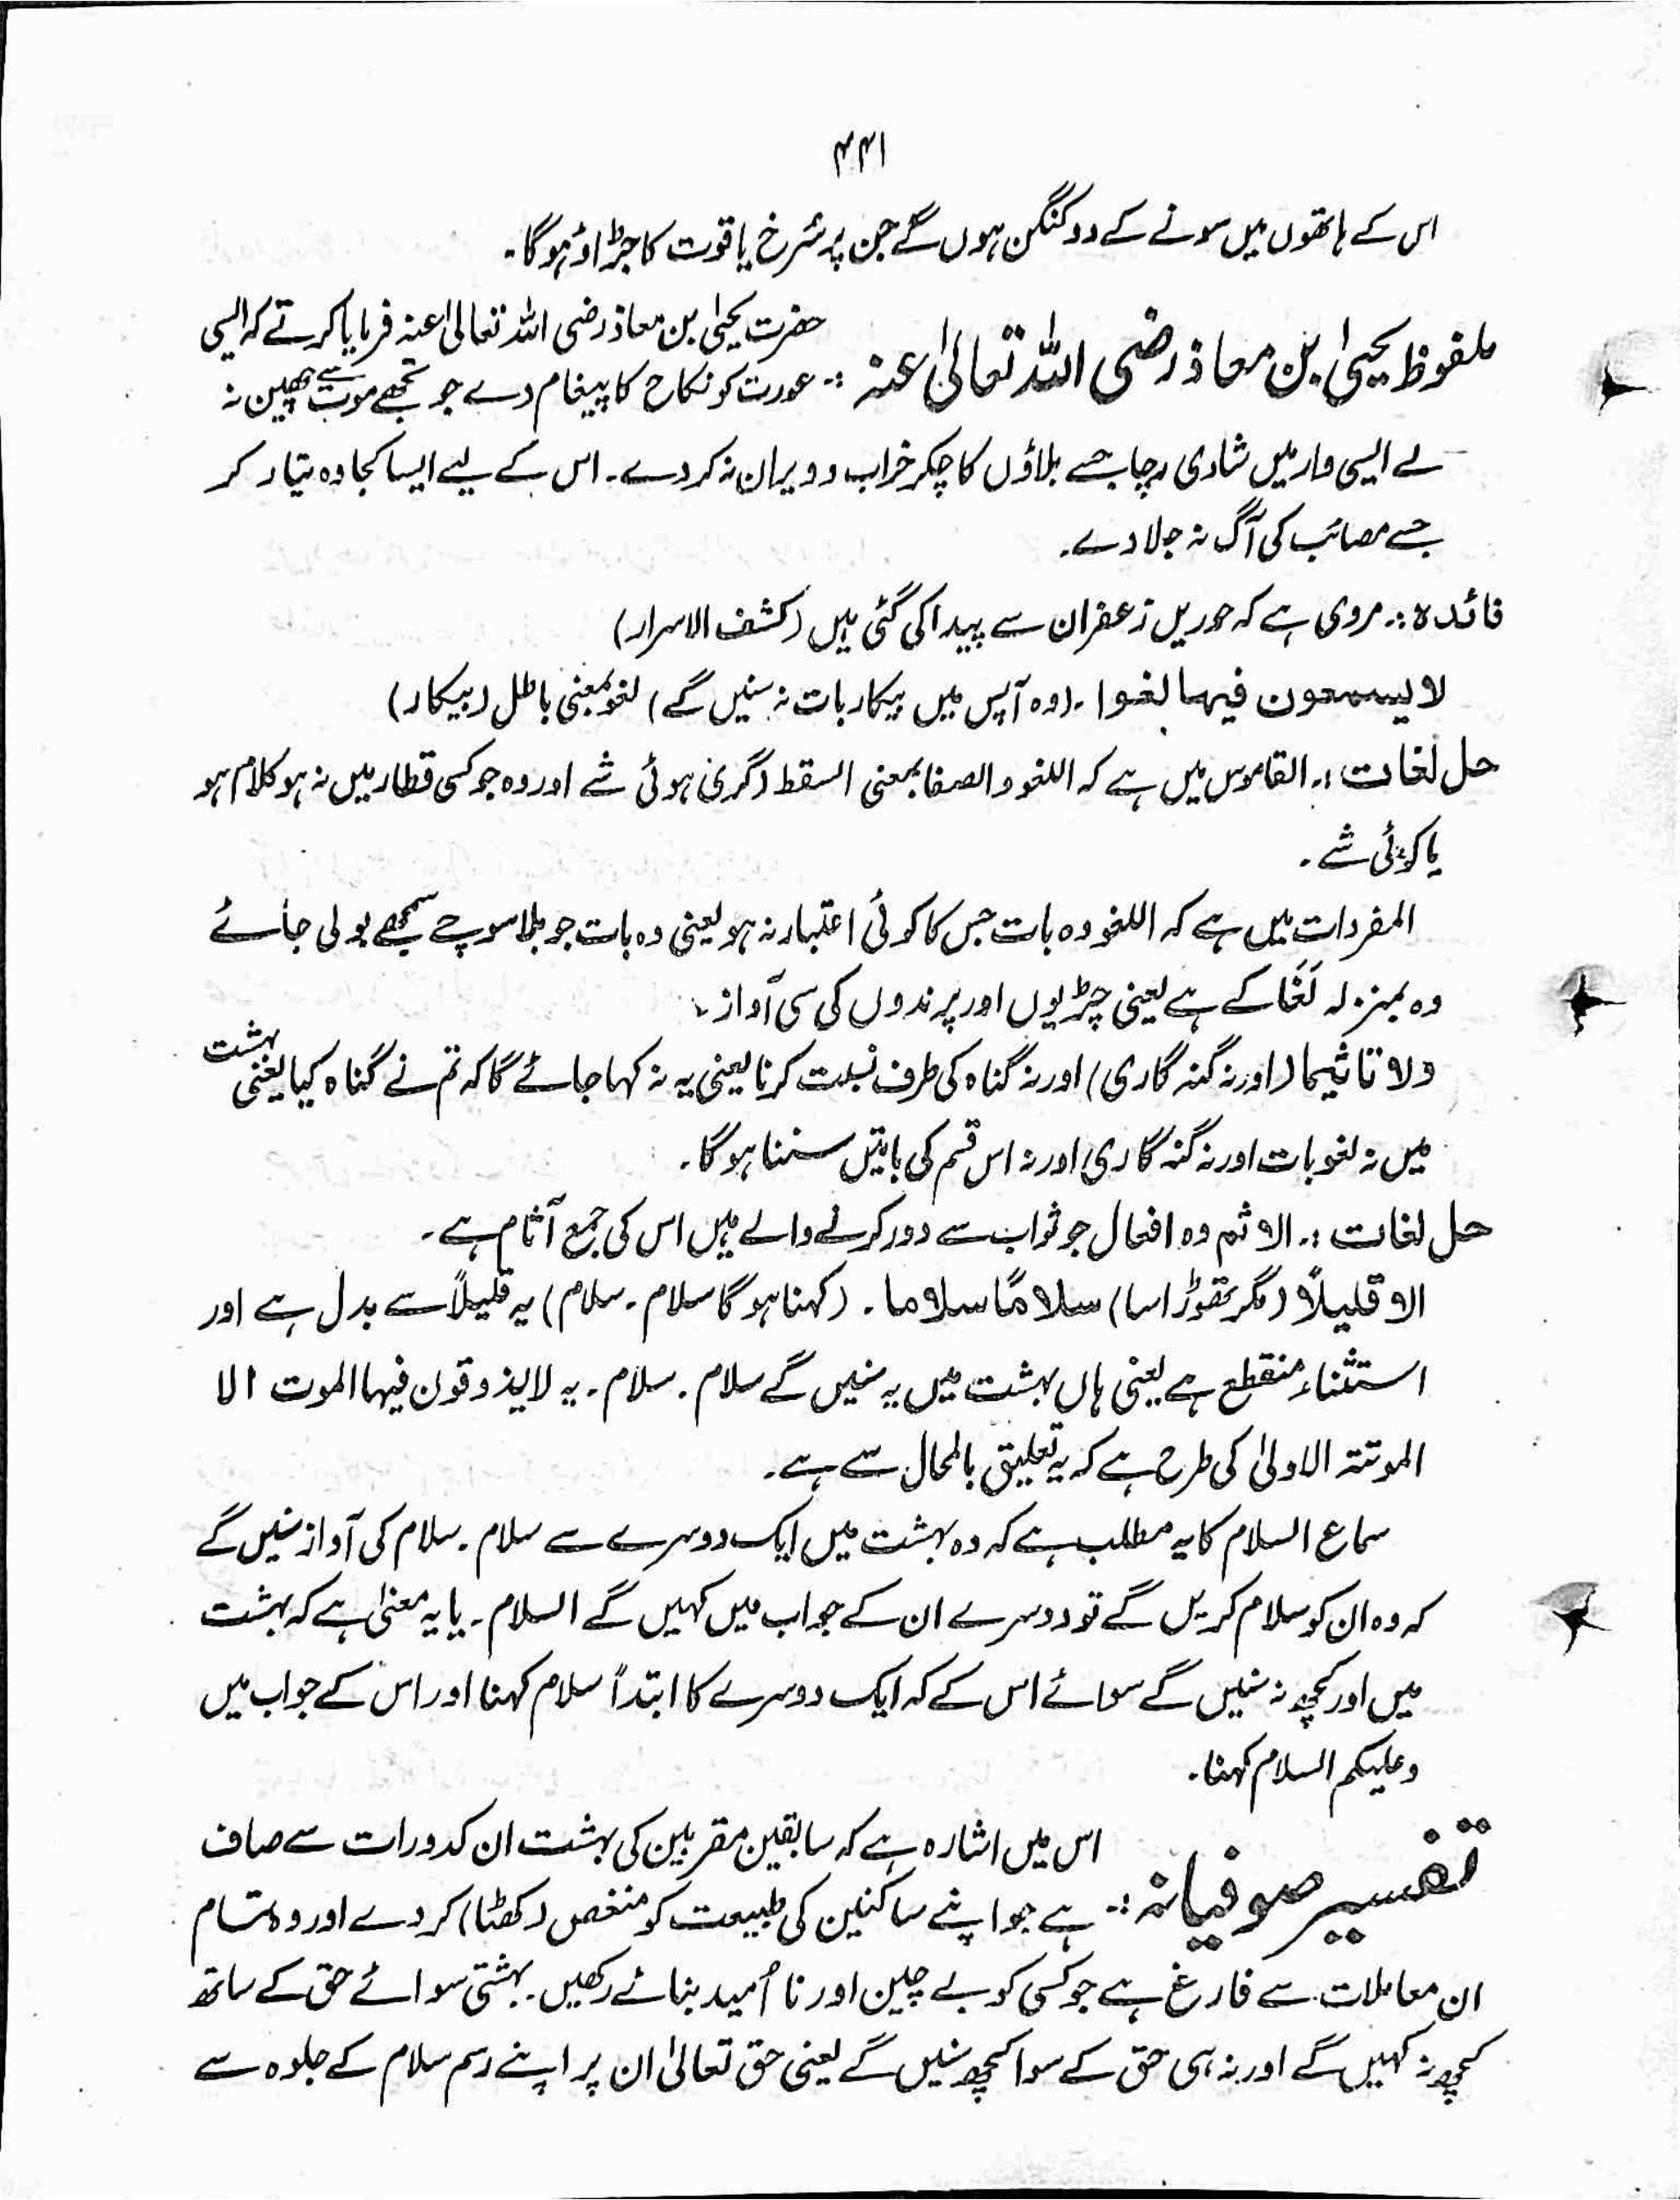 ۴۴۱
اس کے ہاتھوں میں سونے کے دو کنگن ہوں گے جن پر سُرخ یاقوت کا جڑاؤ ہوگا۔
ملفوظ یحییٰ بن معاذ رضی اللہ تعالیٰ عنہ :۔
حضرت یحییٰ بن معاذ رضی اللہ تعالیٰ عنہ فرمایا کرتے کہ ایسی
عورت کو نکاح کا پیغام دے جو تجھے موت سے چھین نہ
لے ایسی دار میں شادی رچا جسے بلاؤں کا چکر خراب و ویران نہ کردے۔ اس کے لیے ایسا کجاوہ تیار کر
جسے مصائب کی آگ نہ جلا دے۔
فائدہ :۔ مروی ہے کہ حوریں زعفران سے پیدا کی گئی ہیں (کشف الاسرار)
لا یسمعون فیہا لغوا ۔ (وہ آپس میں بیکار بات نہ سنیں گے) لغو بمعنی باطل (بیکار)
حل لغات :۔ القاموس میں ہے کہ اللغو والصفا بمعنی السقط (گری ہوئی شے اور وہ جو کسی قطار میں نہ ہو کلام ہو
یا کوئی شے۔
المفردات میں ہے کہ اللغو وہ بات جس کا کوئی اعتبار نہ ہو یعنی وہ بات جو بلا سوچے سمجھے بولی جائے
وہ بمنزلہ لَغَا کے ہے یعنی چڑیوں اور پرندوں کی سی آواز۔
ولا تاثیما (اور نہ گنہ گاری) اور نہ گناہ کی طرف نسبت کرنا یعنی یہ نہ کہا جائے گا کہ تم نے گناہ کیا یعنی بہشت
میں نہ لغو بات اور نہ گنہ گاری اور نہ اس قسم کی باتیں سننا ہوگا۔
حل لغات :۔ الاثم وہ افعال جو ثواب سے دور کرنے والے ہیں اس کی جمع آثام ہے۔
الا قلیلاً (مگر تھوڑا سا) سلامًا سلاما ۔ (کہنا ہوگا سلام ۔ سلام) یہ قلیلاً سے بدل ہے اور
استثناء منقطع ہے یعنی ہاں بہشت میں یہ سنیں گے سلام ۔ سلام ۔ یہ لایذوقون فیہا الموت الا
الموتتہ الاولیٰ کی طرح ہے کہ یہ تعلیق بالمحال سے ہے۔
سماع السلام کا یہ مطلب ہے کہ وہ بہشت میں ایک دوسرے سے سلام ۔ سلام کی آواز سنیں گے
کہ وہ ان کو سلام کریں گے تو دوسرے ان کے جواب میں کہیں گے السلام ۔ یا یہ معنیٰ ہے کہ بہشت
میں اور کچھ نہ سنیں گے سوائے اس کے کہ ایک دوسرے کا ابتداً سلام کہنا اور اس کے جواب میں
وعلیکم السلام کہنا۔
تفسیر صوفیانہ :۔
اس میں اشارہ ہے کہ سابقین مقربین کی بہشت ان کدورات سے صاف
ہے جو اپنے ساکنین کی طبیعت کو منغص (کھٹا) کر دے اور وہ تمام
ان معاملات سے فارغ ہے جو کسی کو بے چین اور نا اُمید بنائے رکھیں۔ بہشتی سوائے حق کے ساتھ
کچھ نہ کہیں گے اور نہ ہی حق کے سوا کچھ سنیں گے یعنی حق تعالیٰ ان پر اپنے رسم سلام کے جلوہ سے